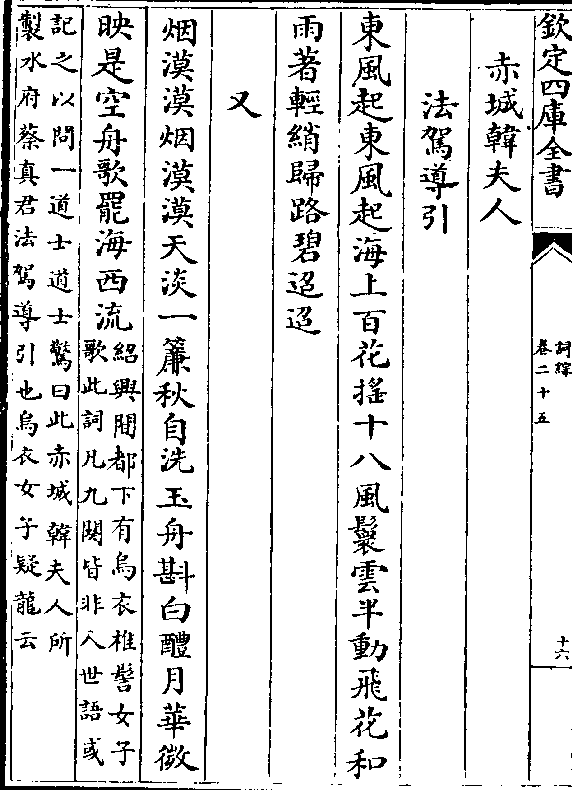 欽定四庫全書
詞綜
卷二十五
十六
赤城韓夫人
法駕導引
東風起東風起海上百花搖十八風鬟雲半動飛花和
雨著輕綃歸路碧迢迢
又
烟漠漠烟漠漠天淡一簾秋自洗玉舟斟白醴月華微
映是空舟歌罷海西流
紹興間都下有烏衣椎髻女子
歌此詞凡九闋皆非人世語或
記之以問一道士道士驚曰此赤城韓夫人所
製水府蔡真君法駕導引也烏衣女子疑龍云